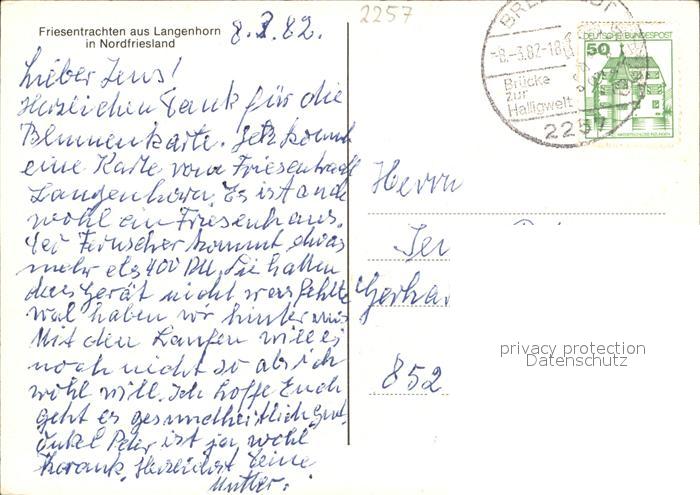 Friesentrachten aus Langenhorn
in Nordfriesland
8.3.82.
2257
Lieber Jens!
Herzlichen Dank für die
Blumenkarte. Jetz kommt
eine Karte vom Friesentracht
Langenhorn. Es ist auch
wohl ein Friesenhaus.
Der Fernseher kommt etwas
mehr als 400 DM. Sie hatten
das Gerät nicht was fehlte
wal haben wir hinter uns
Mit den Laufen will es
noch nicht so als ich
wohl will. Ich hoffe Euch
geht es gesundheitlich gut.
Onkel Peter ist ja wohl
krank. Herzlichst Deine
Mutter.
8.-3.82-18
Brücke
zur
Halligwelt
2257
DEUTSCHE BUNDESPOST
50
Herrn
Jen
Gerha
852
privacy protection
Datenschutz